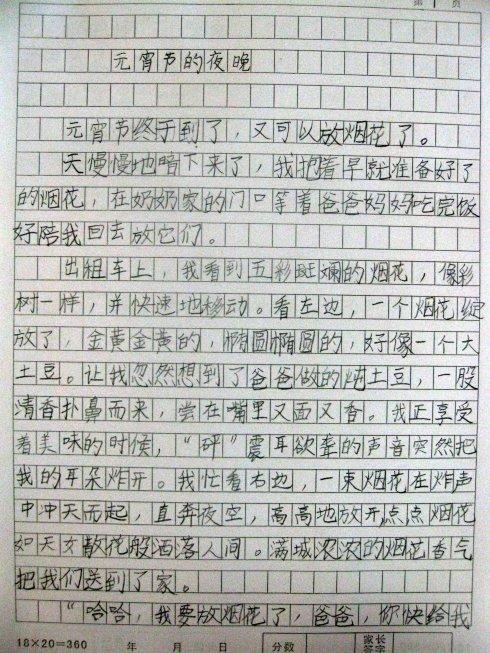 第1页
元宵节的夜晚
元宵节终于到了，又可以放烟花了。
天慢慢地暗下来了，我抱着早就准备好了
的烟花，在奶奶家的门口等着爸爸妈妈吃完饭
好陪我回去放它们。
出租车上，我看到五彩斑斓的烟花，像彩
树一样，并快速地移动。看左边，一个烟花绽
放了，金黄金黄的，椭圆椭圆的，好像一个大
土豆。让我忽然想到了爸爸做的炖土豆，一股
清香扑鼻而来，尝在嘴里又面又香。我正享受
着美味的时候，“砰”震耳欲聋的声音突然把
我的耳朵炸开。我忙看右边，一束烟花在炸声
中冲天而起，直奔夜空，高高地放开，点点烟花
如天女散花般洒落人间。满城浓浓的烟花香气
把我们送到了家。
“哈哈，我要放烟花了，爸爸，你快给我
18×20=360 年 月 日 分数 家长签字